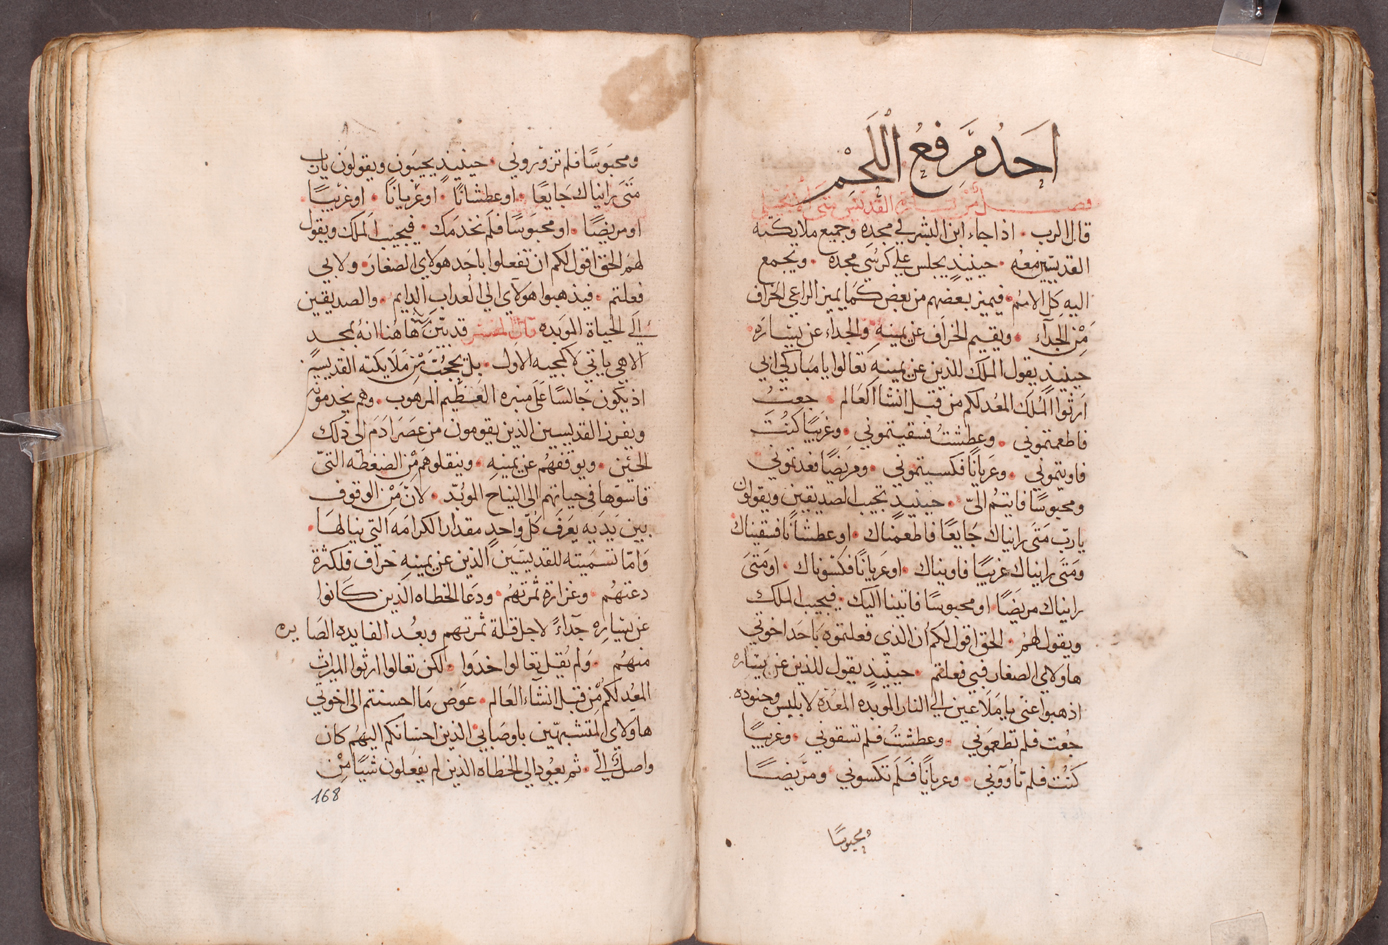 احد مرفع اللحم
فصل من بشارة القديس متى الانجيلي
قال الرب ٠ اذا جاء ابن البشر في مجده وجميع ملايكته
القديسين معه ٠ حينيذٍ يجلس علي كرسي مجده ٠ ويجمع
اليه كل الامم ٠ فيميز بعضهم من بعض كما يميز الراعي الخراف
مِن الجدآء ٠ ويقيم الخراف عن يمينهِ ٠ والجداء عن يساره ٠
حينيذٍ يقول الملك للذين عن يمينهِ تعالوا يا مباركي ابي
ارثوا المُلك المعد لكم من قبل انشا العالم ٠ جعتُ
فاطعمتموني ٠ وعطشتُ فسقيتموني ٠ وغريبًا كنتُ
فاويتموني ٠ وعريانًا فكسيتموني ٠ ومريضًا فعدتموني
ومحبوسًا فاتيتم اليّ ٠ حينيذٍ تجيب الصديقين ويقولون
يا ربّ متى رايناك جايعًا فاطعمناك ٠ او عطشانًا فسقيناك
ومتى رايناك غريبًا فاويناك ٠ او عريانًا فكسوناك ٠ او متَى
رايناك مريضًا او محبوسًا فاتينا اليك ٠ فيجيب الملك
ويقول لهم ٠ الحق اقول لكم ان الذي فعلتموه باحد اخوتي
هاولاي الصغار فبي فعلتم ٠ حينيذٍ يقول للذين عن يساره
اذهبوا عني يا ملاعين الي النار الموبده المعدة لابليس وجنوده
جُعت فلم تطعموني ٠ وعطشتُ فلم تسقوني ٠ وغريبًا
كنتُ فلم تاووني ٠ وعريانًا فلَم تكسوني ٠ ومريضًا
محبوسًا
ومحبوسًا فلم تزوروني ٠ حينيذٍ يجيبون ويقولون يا رب
متَى رايناك جايعًا ٠ او عطشانًا ٠ او عريانًا ٠ او غريبًا ٠
او مريضًا ٠ او محبوسًا فلم نخدمك ٠ فيجيب الملك ويقول
لهم الحق اقول لكم ان تفعلوا باحد هولاي الصغار ٠ ولا بي
فعلتم ٠ فيذهبوا هولاي الي العذاب الدايم ٠ والصديقين
الَي الحياة الموبده قال المفسر قد تبين هاهنا انه بمجد
الاهي ياتي لا كمجيه الاول ٠ بل يحجبُ مِن ملايكته القديسين
اذ يكون جالسًا على منبره العظيم المرهوب ٠ وهم يخدموه
ويفرز القديسين الذين يقومون من عصر ادم الي ذلك
الحين ٠ ويوقفهم عن يمينهِ ٠ وينقلوهم مِن الضغطه التيّ
قاسوها في حياتهم الي النياح الموبّد ٠ لان مَن الوقوف
بين يديه يعرف كل واحدٍ مقدار الكرامه التي ينالها ٠
وَاما تسميته للقديسين الذين عن يمينهِ خراف فلكثرة
دعتهم ٠ وغزارة ثمرتهم ٠ ودعا الخطاه الذين كانوا
عن يسارهِ جدآءً لاجل قلة ثمرتهم وبعُد الفايده الصايره
منهم ٠ ولم يقُل تعالوا خدوا ٠ لكن تعالوا ارثوا الميراث
المعد لكم من قبل انشاء العالم ٠ عوض ما احسنتم الى اخوتي
هاولاي المتشبهين باوصَياني الذين احسانكم اليهم كان
واصلٌ اليّ ٠ ثم يعود الي الخطاه الذين لم يفعلون شيًا من
168